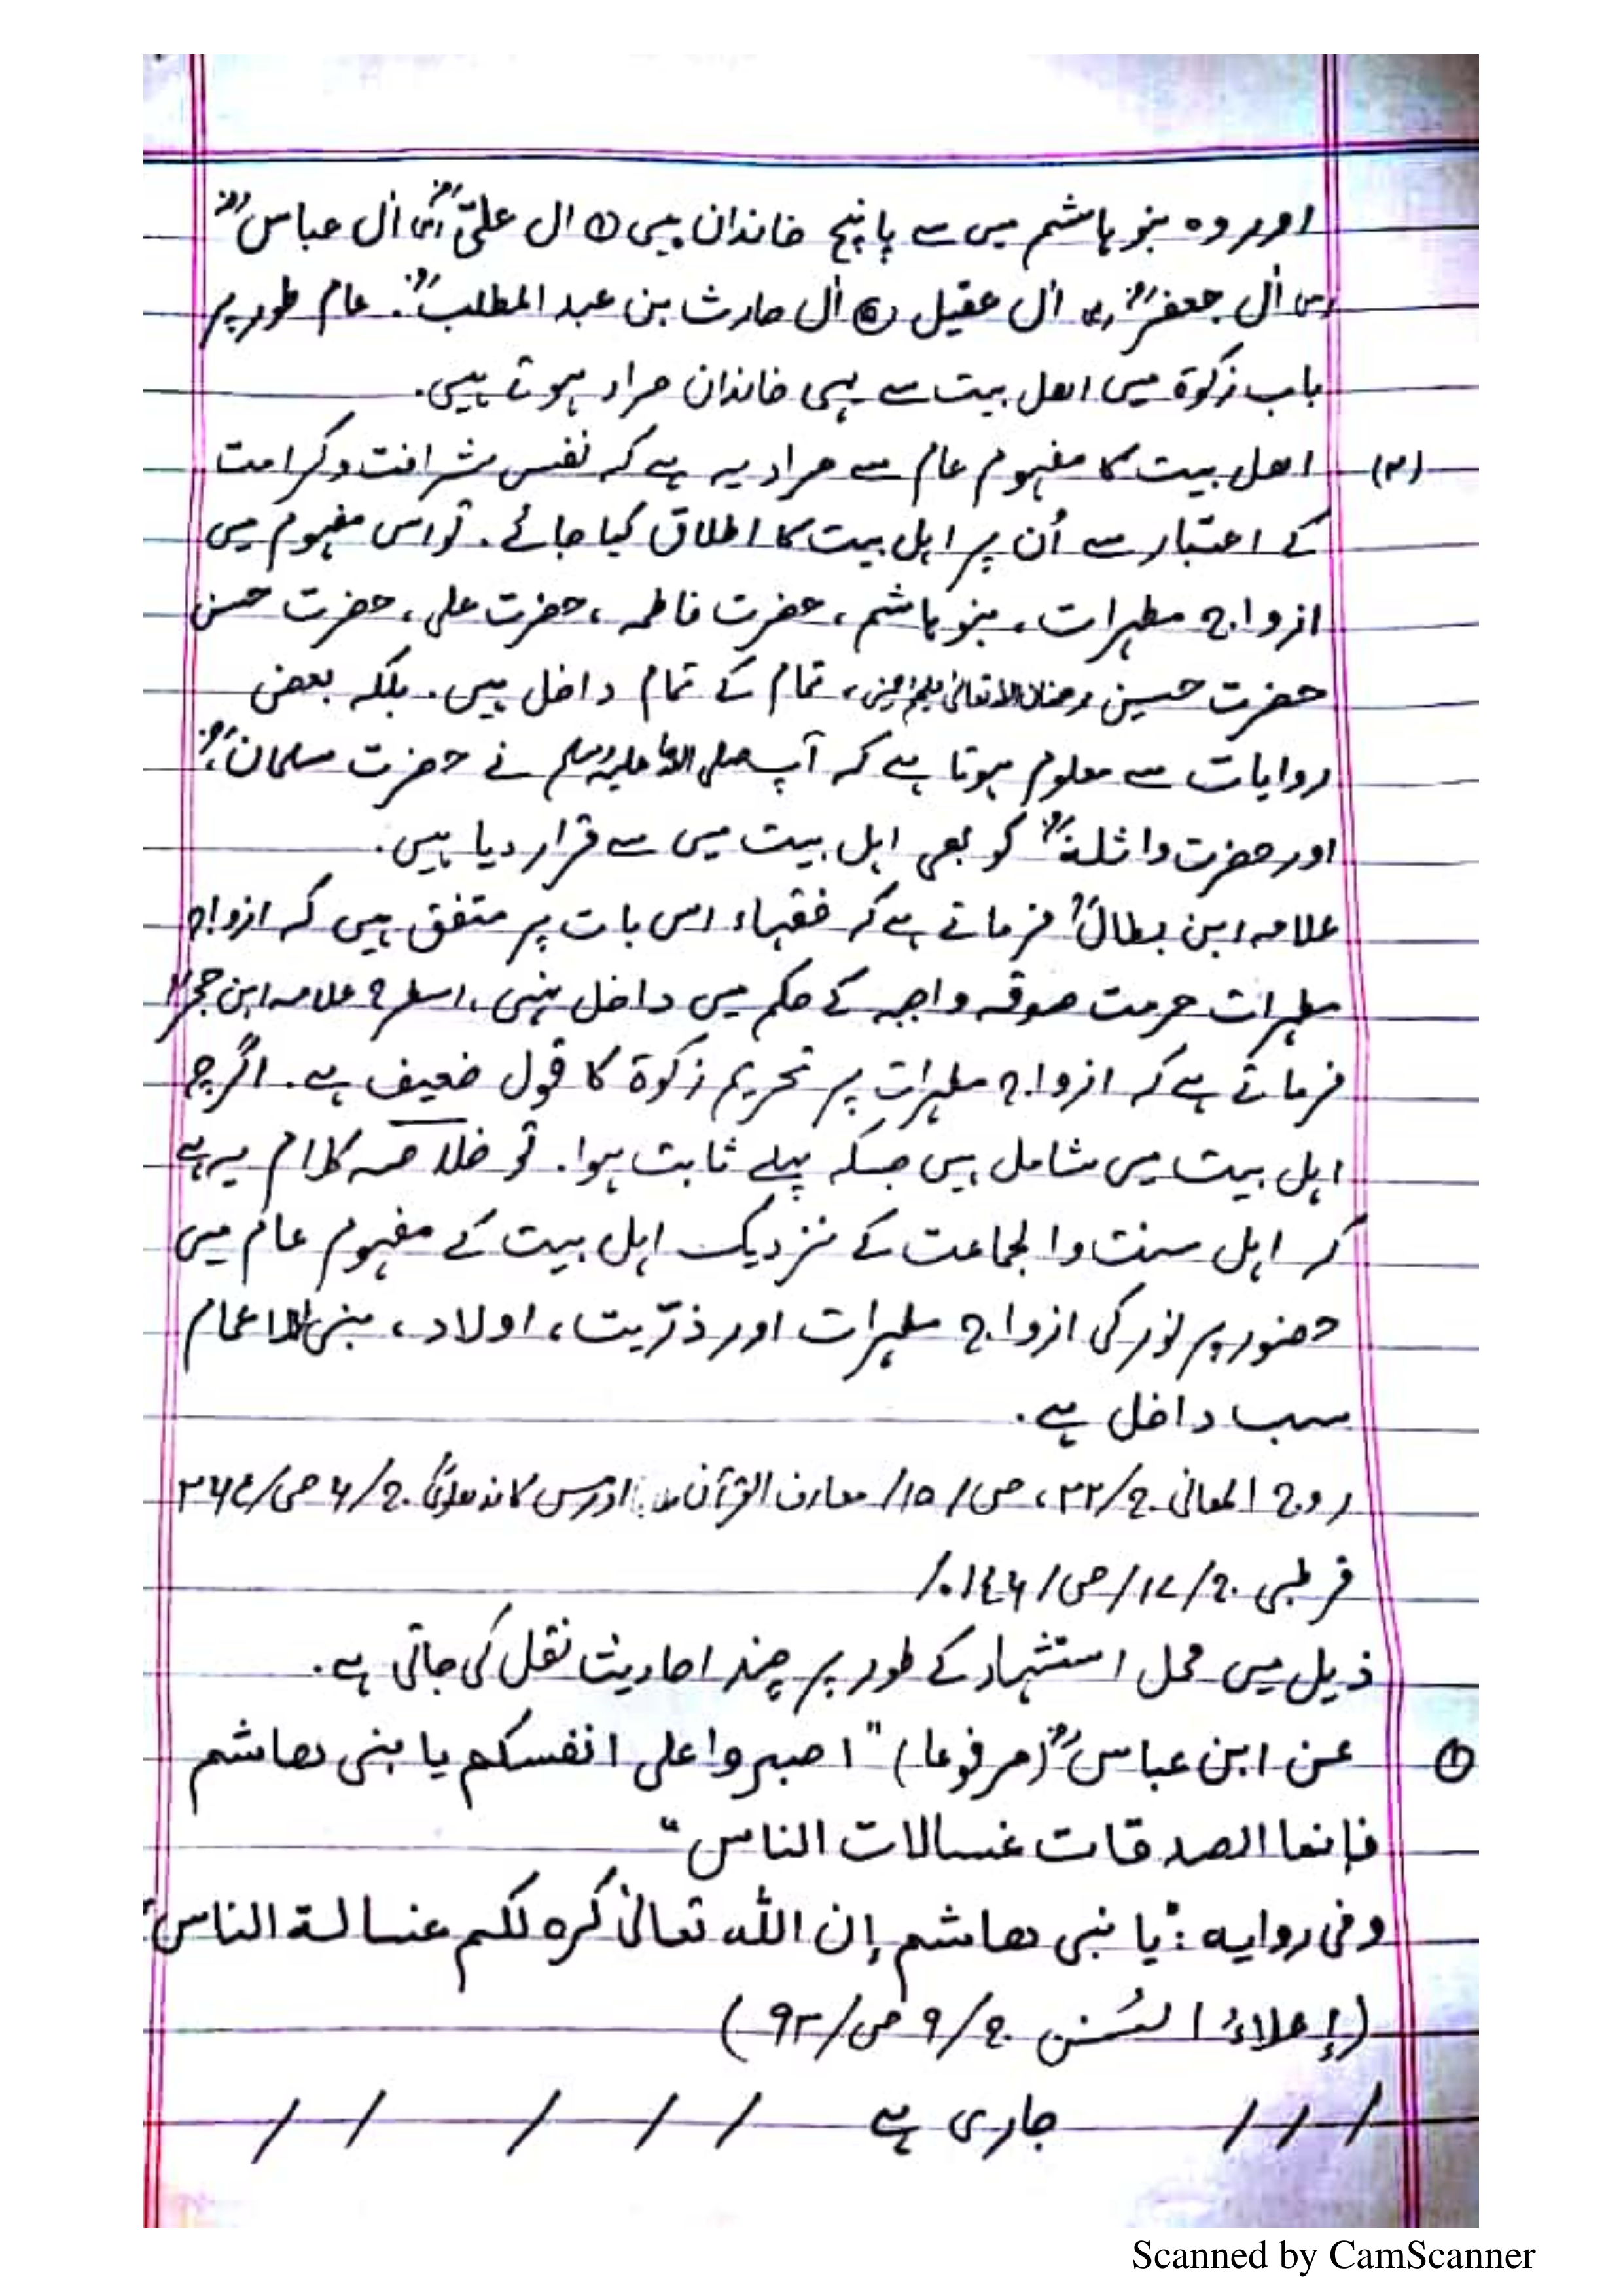 اور وہ بنو ہاشم میں سے پانچ خاندان ہیں (۱) ال علیؓ (۲) اٰل عباسؓ
(۳) اٰل جعفرؓ (۴) اٰل عقیل (۵) اٰل حارث بن عبد المطلبؓ. عام طور پر
باب زکوٰۃ میں اھل بیت سے یہی خاندان مراد ہوتے ہیں.
(۳) اھل بیت کا مفہوم عام سے مراد یہ ہے کہ نفس شرافت و کرامت
کے اعتبار سے اُن پر اہل بیت کا اطلاق کیا جائے. تو اس مفہوم میں
ازواج مطہرات، بنو ہاشم، حضرت فاطمہ، حضرت علی، حضرت حسن
حضرت حسین رضوان اللہ تعالیٰ علیہم اجمعین، تمام کے تمام داخل ہیں. بلکہ بعض
روایات سے معلوم ہوتا ہے کہ آپ صلی اللہ علیہ وسلم نے حضرت سلمانؓ
اور حضرت واثلہؓ کو بھی اہل بیت میں سے قرار دیا ہیں.
علامہ ابن بطالؒ فرماتے ہے کہ فقہاء اس بات پر متفق ہیں کہ ازواج
مطہرات حرمت صدقہ واجبہ کے حکم میں داخل نہیں، اسطرح علامہ ابن حجرؒ
فرماتے ہے کہ ازواج مطہرات پر تحریم زکوۃ کا قول ضعیف ہے. اگرچہ
اہل بیت میں شامل ہیں جسکہ پہلے ثابت ہوا. تو خلاصہ کلام یہ ہے
کہ اہل سنت والجماعت کے نزدیک اہل بیت کے مفہوم عام میں
حضور پر نور کی ازواج مطہرات اور ذرّیت، اولاد، بنی الاعمام
سب داخل ہے.
روح المعانی ج/۲۲، ص/۱۵/ معارف القرآن ادریس کاندھلویؒ ج/۶ ص/۲۶۴
قرطبی ج/۱۷/ص/۱۴۶/
ذیل میں محل استشہاد کے طور پر چند احادیث نقل کی جاتی ہے.
(۱) عن ابن عباسؓ (مرفوعا) "اصبروا علی انفسکم یا بنی ھاشم
فإنما الصدقات غسالات الناس"
وفی روایہ: "یا بنی ھاشم إن اللہ تعالیٰ کرہ لکم غسالة الناس"
(إعلاءُ السُنن ج/۹ ص/۹۲)
/ / / جاری ہے / / / / /
Scanned by CamScanner